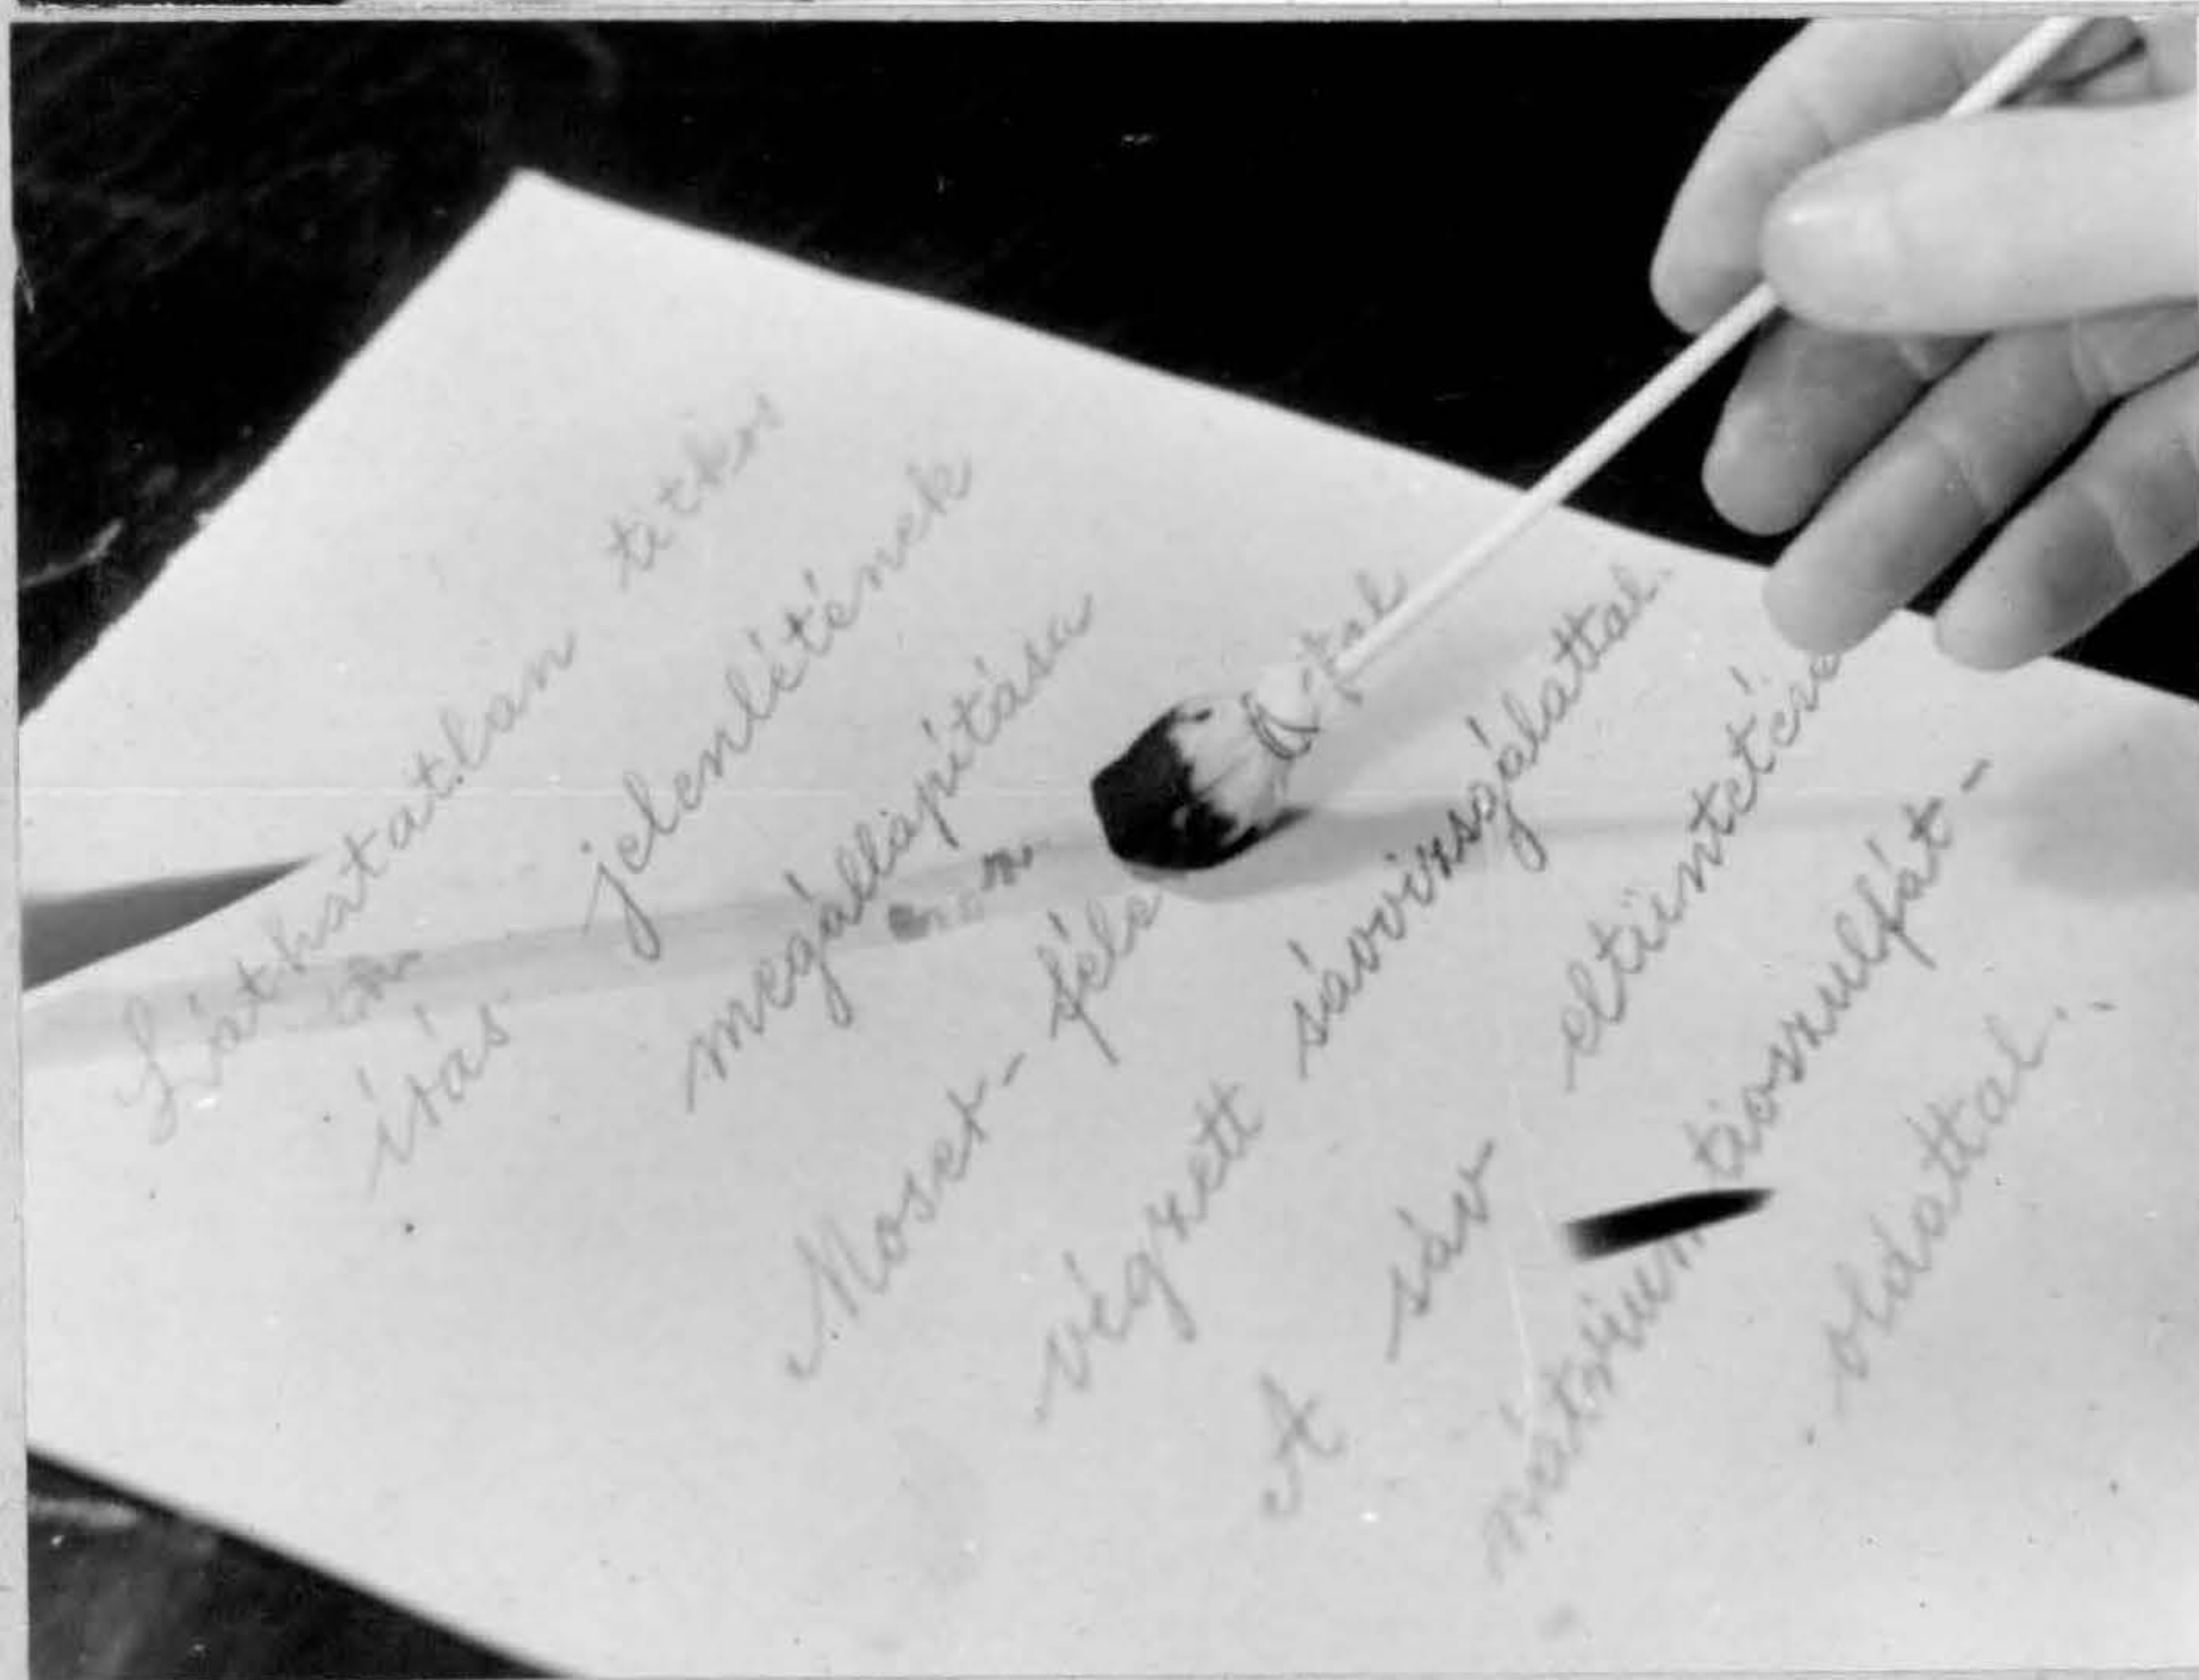 Láthatatlan titkos
írás jelenlétének
megállapítása
Moser-féle
végzett sávvizsgálattal.
A sáv eltüntetése
nátrium tioszulfát-
oldattal.